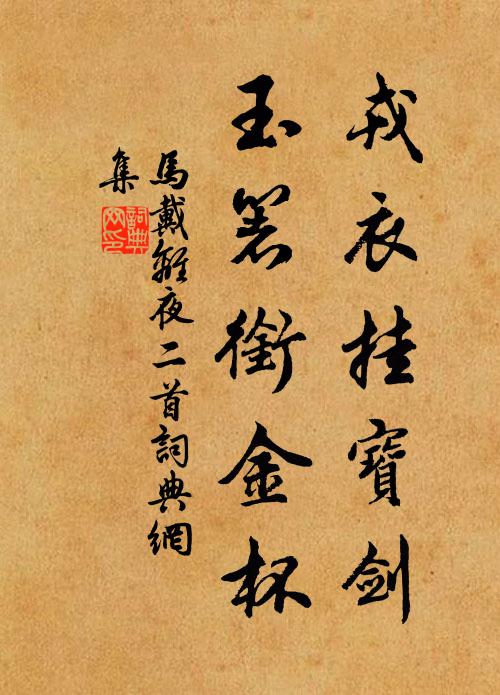 戎衣挂寶劍
玉箸銜金杯
馬戴離夜二首詞典網
集
詞典网印